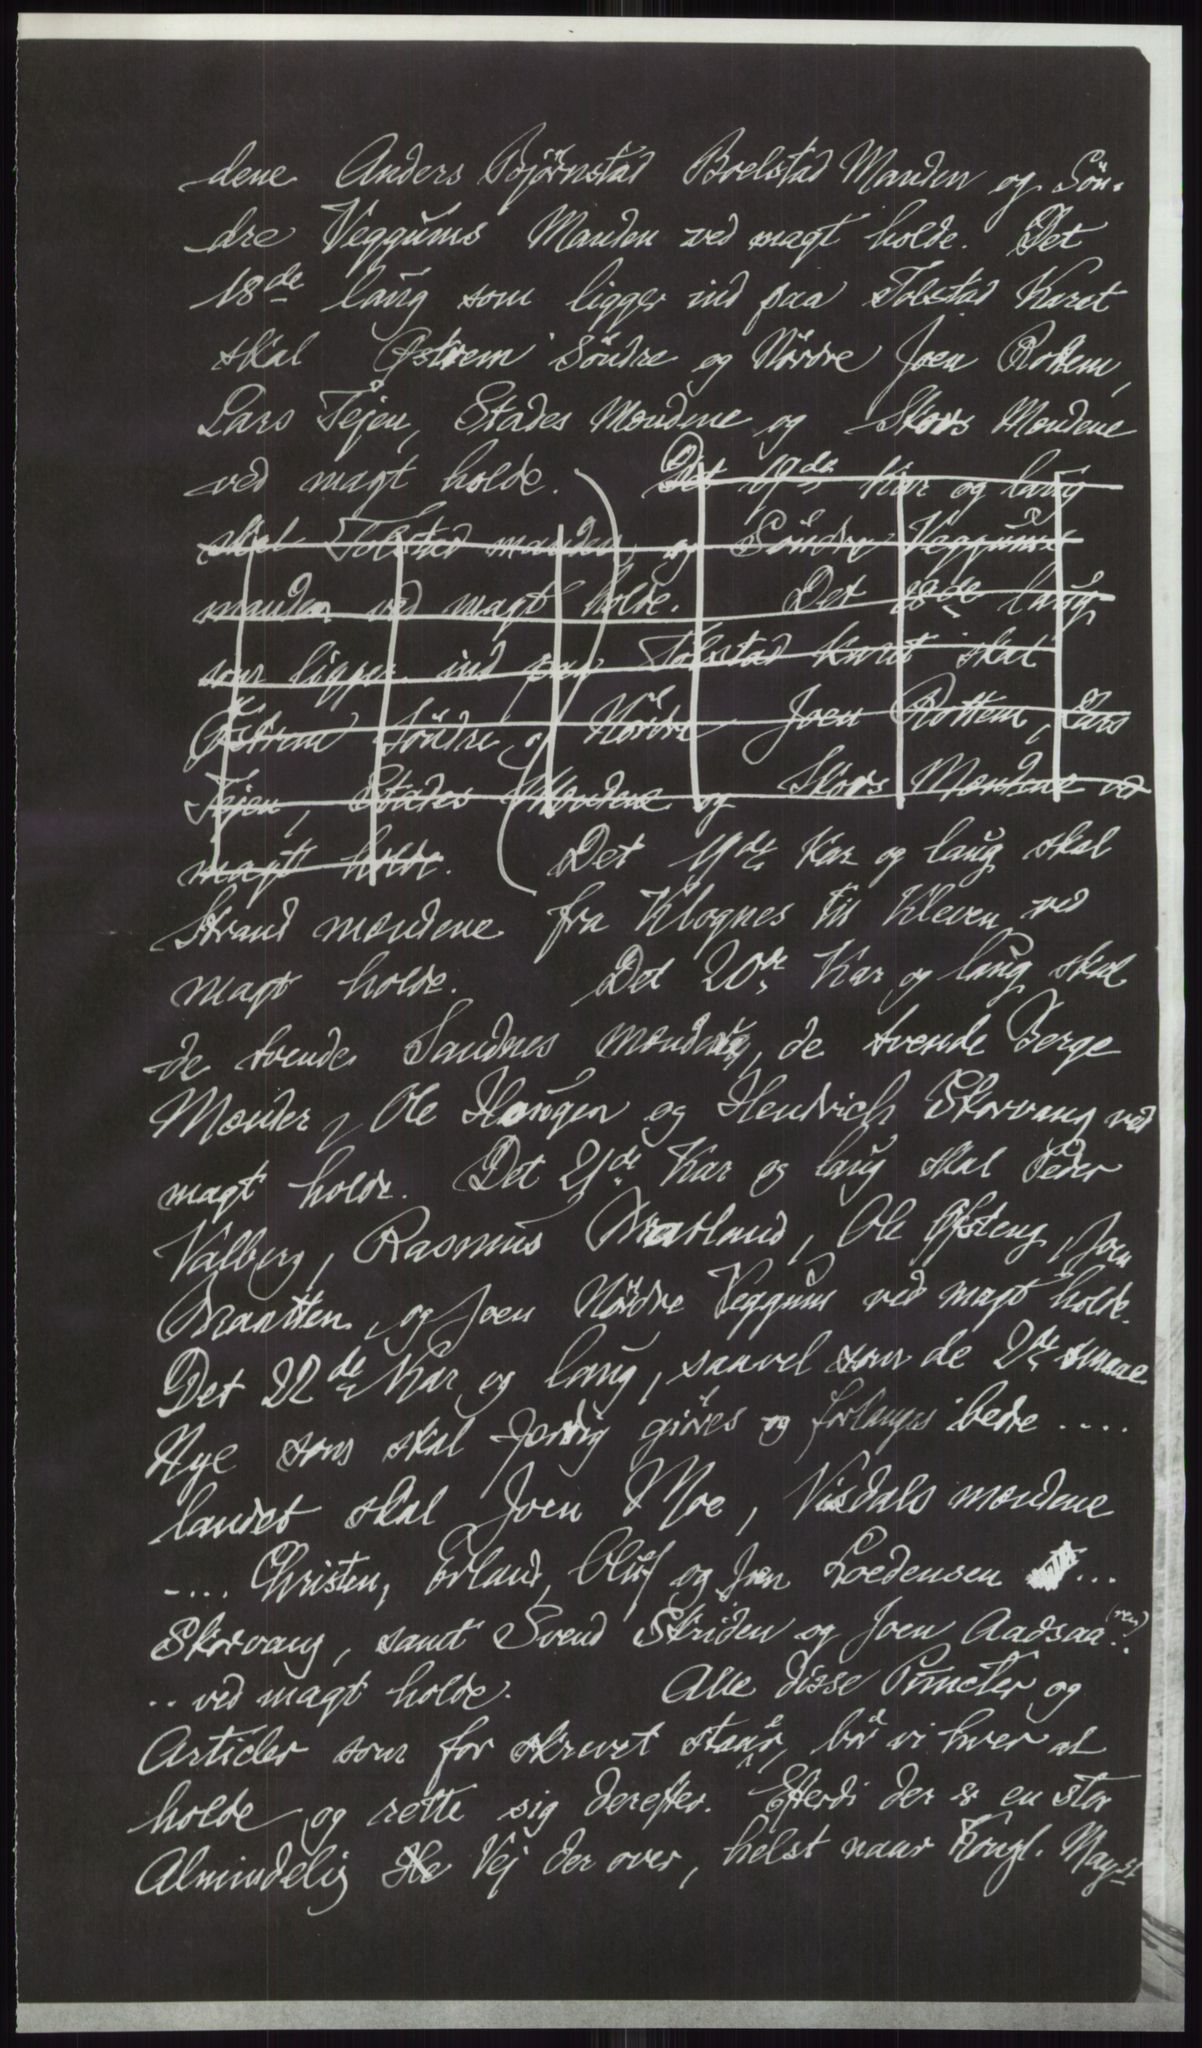 dene Anders Bjørnstad Boelstad Manden og Sön-
dre Veggums Manden ved magt holde. Det
18de laug som ligger ind paa Tolstad Karet
skal Öystrem Söndre og Nördre Joen Rottem,
Lars Tejen, Stades Mændene og Skors Mændene
ved magt holde. Det 19de Kar og laug
skal Tolstad manden og Söndre Veggums
manden ved magt holde. Det 18de laug
som ligger ind paa Tolstad Karet skal
Östrem Söndre og Nördre Joen Rottem, Lars
Tejen, Stades Mændene og Skors Mændene ved
magt holde. Det 19de Kar og laug skal
Strand mændene fra Klognes til Kleven ved
magt holde. Det 20de Kar og laug skal
de tvende Sandnes mændene, de tvende Berge
Mænder, Ole Haugen og Hendrich Skorvang ved
magt holde. Det 21de Kar og laug skal Peder
Valberg, Rasmus Ole Joen
Braatten, og Joen Nördre Veggum ved magt holde.
Det 22de Kar og laug, saavel som de 2de smaae
Nye som skal færdig giöres og forlanges bedre ....
landet skal Joen Moe, Visdals mændene
.... Christen, Erland, Oluf og Joen Loedensen ...
Skorvang, samt Svend Skriden og Joen Aadsaa(ren)..
.. ved magt holde. Alle disse Puncter og
Articler som for skrevet staar, bör vi hver at
holde og rette sig derefter. Efterdi der er en stor
Almindelig Vej der over, helst naar Kongl. Mayst